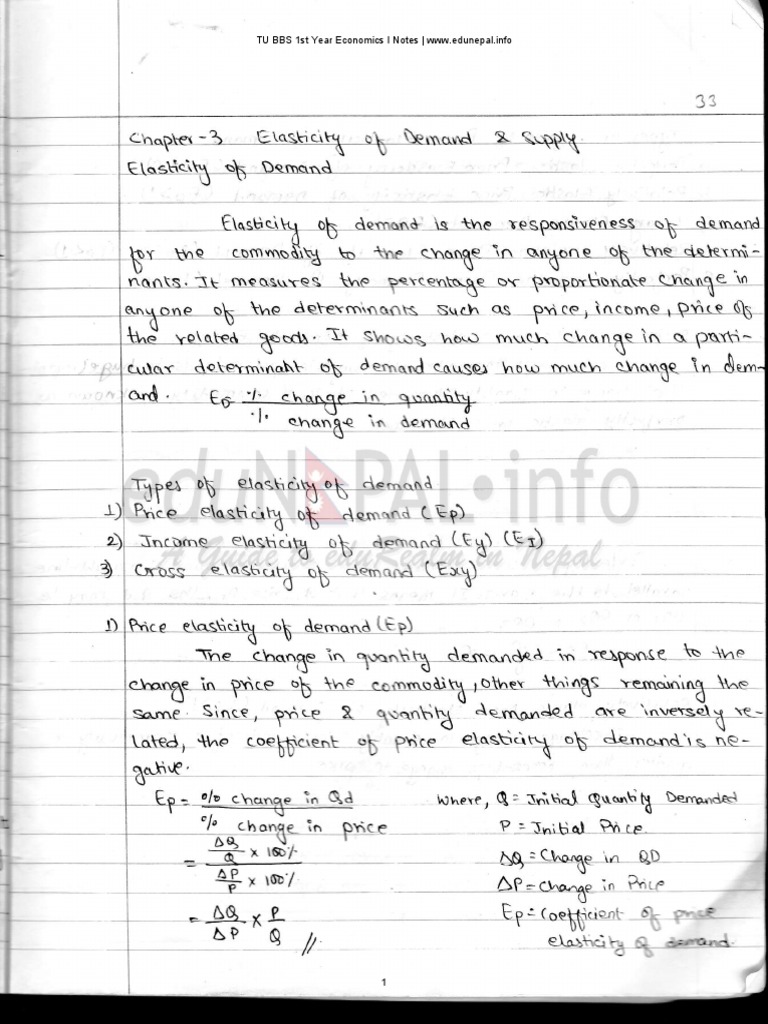 TU BBS 1st Year Economics I Notes | www.edunepal.info
33
Chapter-3 Elasticity of Demand & Supply
Elasticity of Demand
Elasticity of demand is the responsiveness of demand
for the commodity to the change in anyone of the determi-
nants. It measures the percentage or proportionate change in
anyone of the determinants such as price, income, price of
the related goods. It shows how much change in a parti-
cular determinant of demand causes how much change in dem-
and. ED = % change in quantity
% change in demand
eduNEPAL.info
Types of elasticity of demand
1) Price elasticity of demand (Ep)
2) Income elasticity of demand (Ey) (EI)
A Guide to edu-Realm in Nepal
3) Cross elasticity of demand (Exy)
1) Price elasticity of demand (Ep)
The change in quantity demanded in response to the
change in price of the commodity, other things remaining the
same. Since, price & quantity demanded are inversely re-
lated, the coefficient of price elasticity of demand is ne-
gative.
Ep = % change in Qd where, Q = Initial Quantity Demanded
% change in price P = Initial Price
= ΔQ/Q × 100% ΔQ = Change in QD
ΔP/P × 100% ΔP = Change in Price
= ΔQ/ΔP × P/Q // Ep = Coefficient of price
elasticity of demand.
1